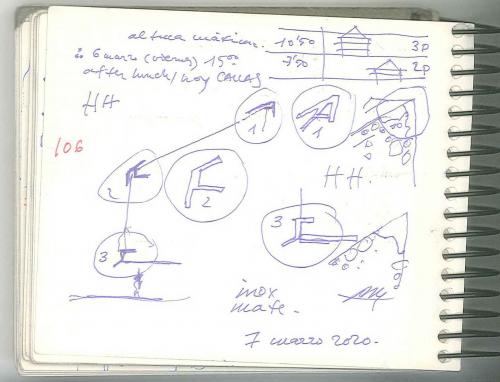 altura máxima.
10'50
3P
7'50
2P
6 marzo (viernes) 15:00
after lunch/
HH
106
1
1
HH.
2
2
3
3
inox
mate.
7 marzo 2020.